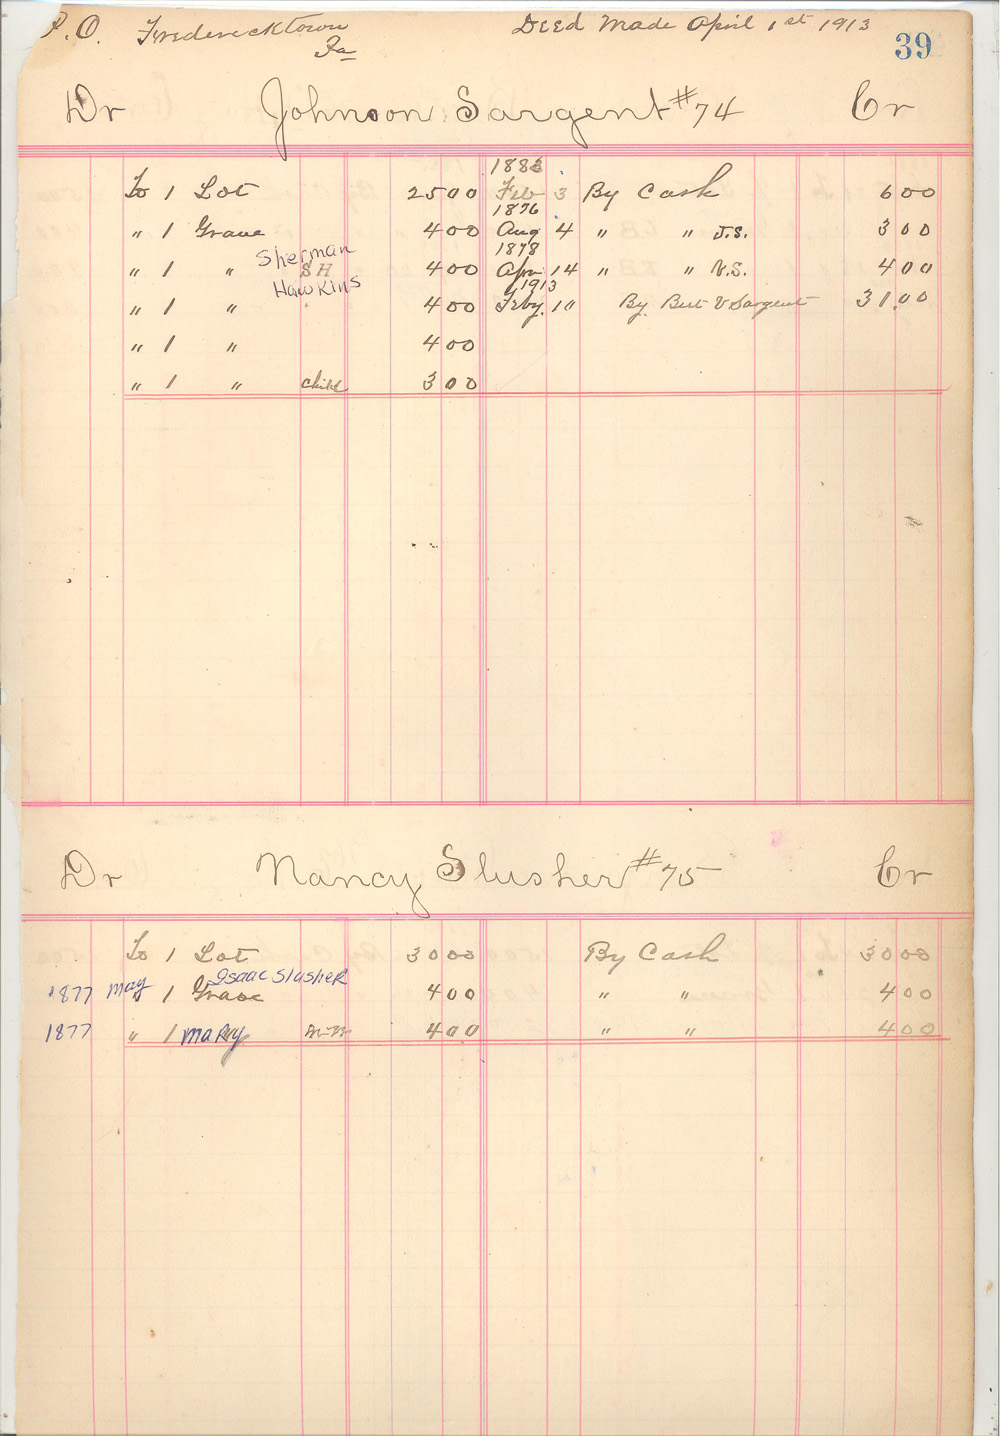 P.O. Fredericktown Deed Made April 1st 1913
Pa 39
Dr Johnson Sargent #74 Cr
To 1 Lot 2500 Feb 3 By Cash 600
1876
" 1 Grave 400 Aug 4 " " J.S. 300
Sherman 1878
" 1 " SH 400 Apr 14 " " V.S. 400
Hawkins 1913
" 1 " 400 Feby. 10 By. Bert V Sargent 31.00
" 1 " 400
" 1 " child 300
Dr Nancy Slusher #75 Cr
To 1 Lot 3000 By Cash 3000
Isaac Slusher
1877 May " 1 Grave 400 " " 400
1877 " 1 Mary 400 " " 400